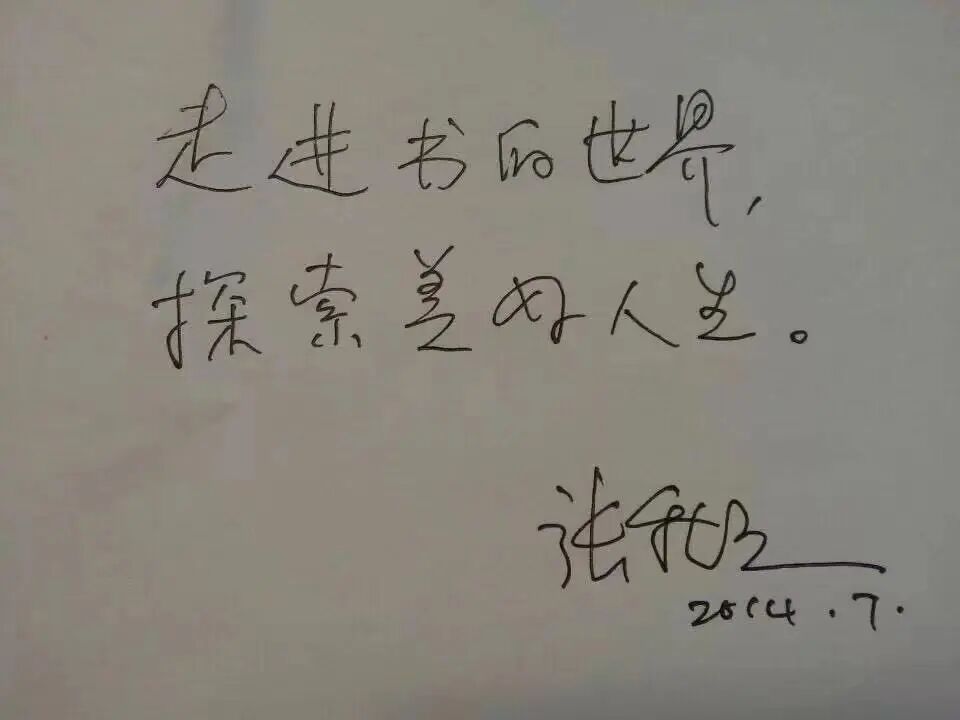 走进书的世界，
探索美好人生。
张
2014.7.